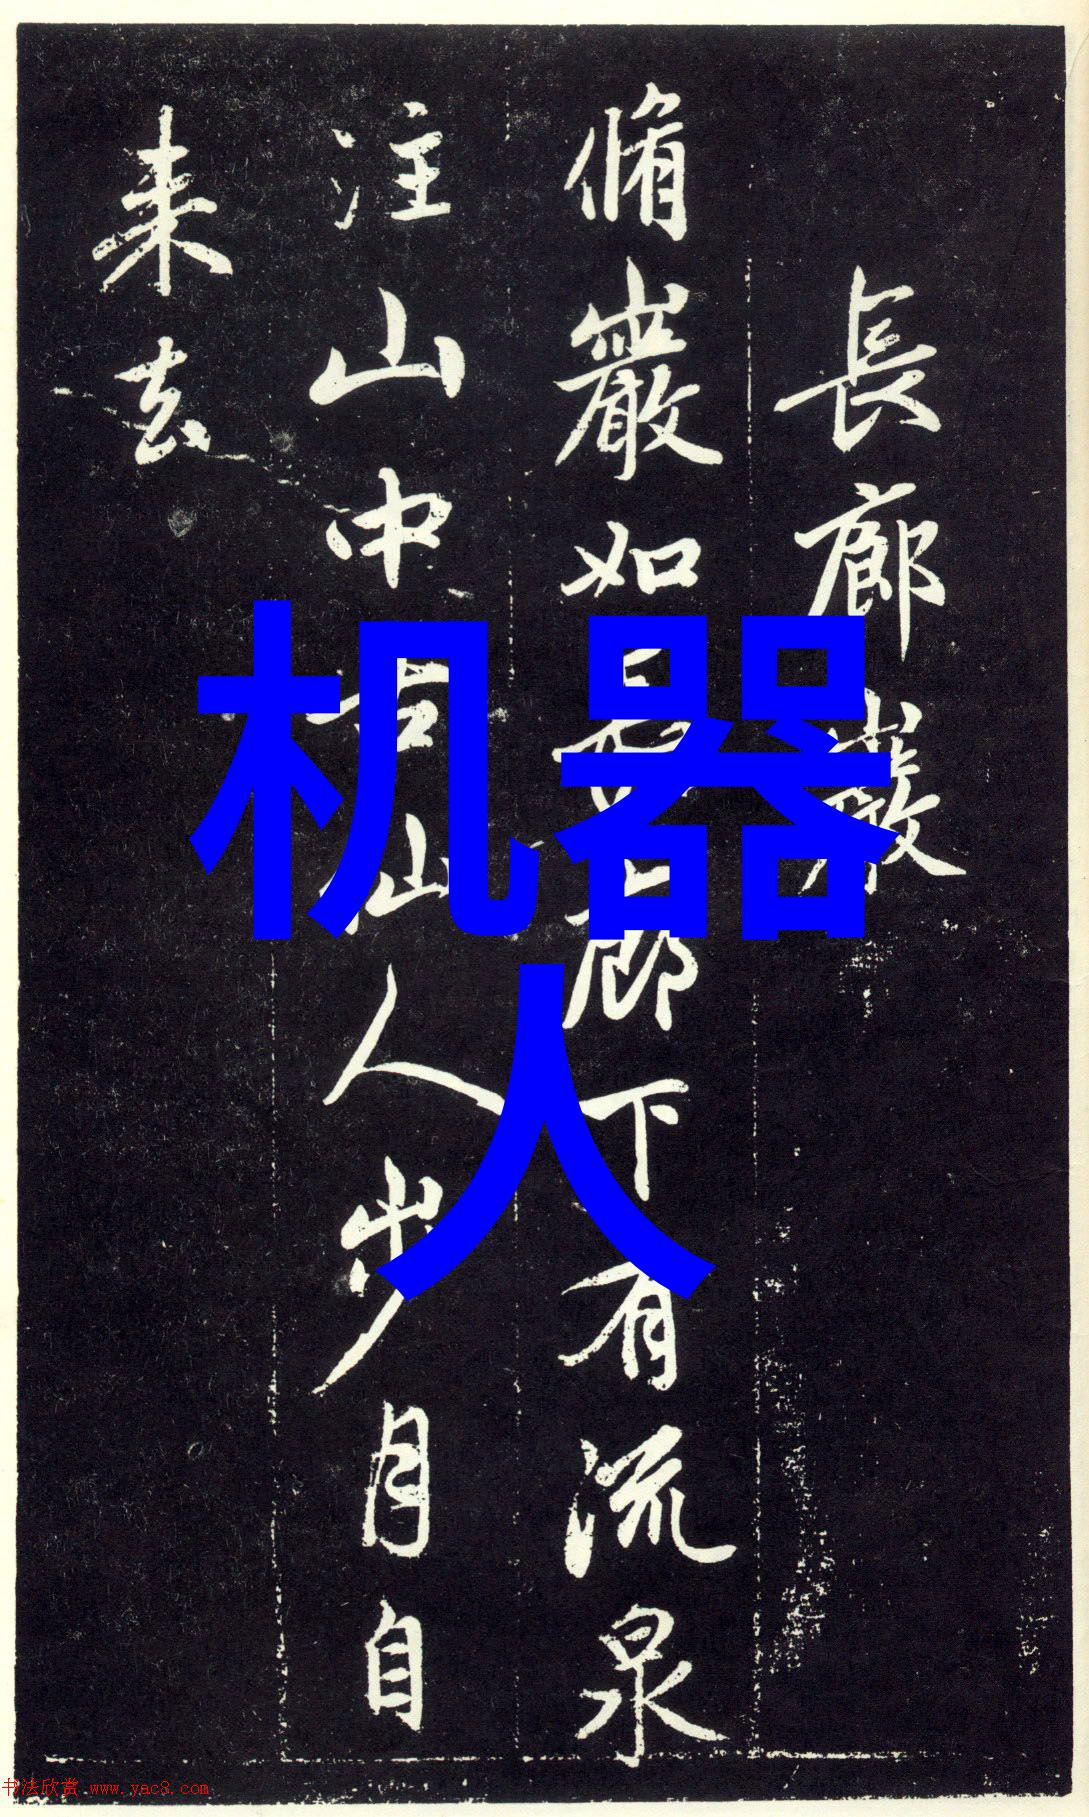 長廊巖
脩巖如廊下有流泉
注山中古仙人步月自
来去
机器
人
书法欣赏 www.yac8.com